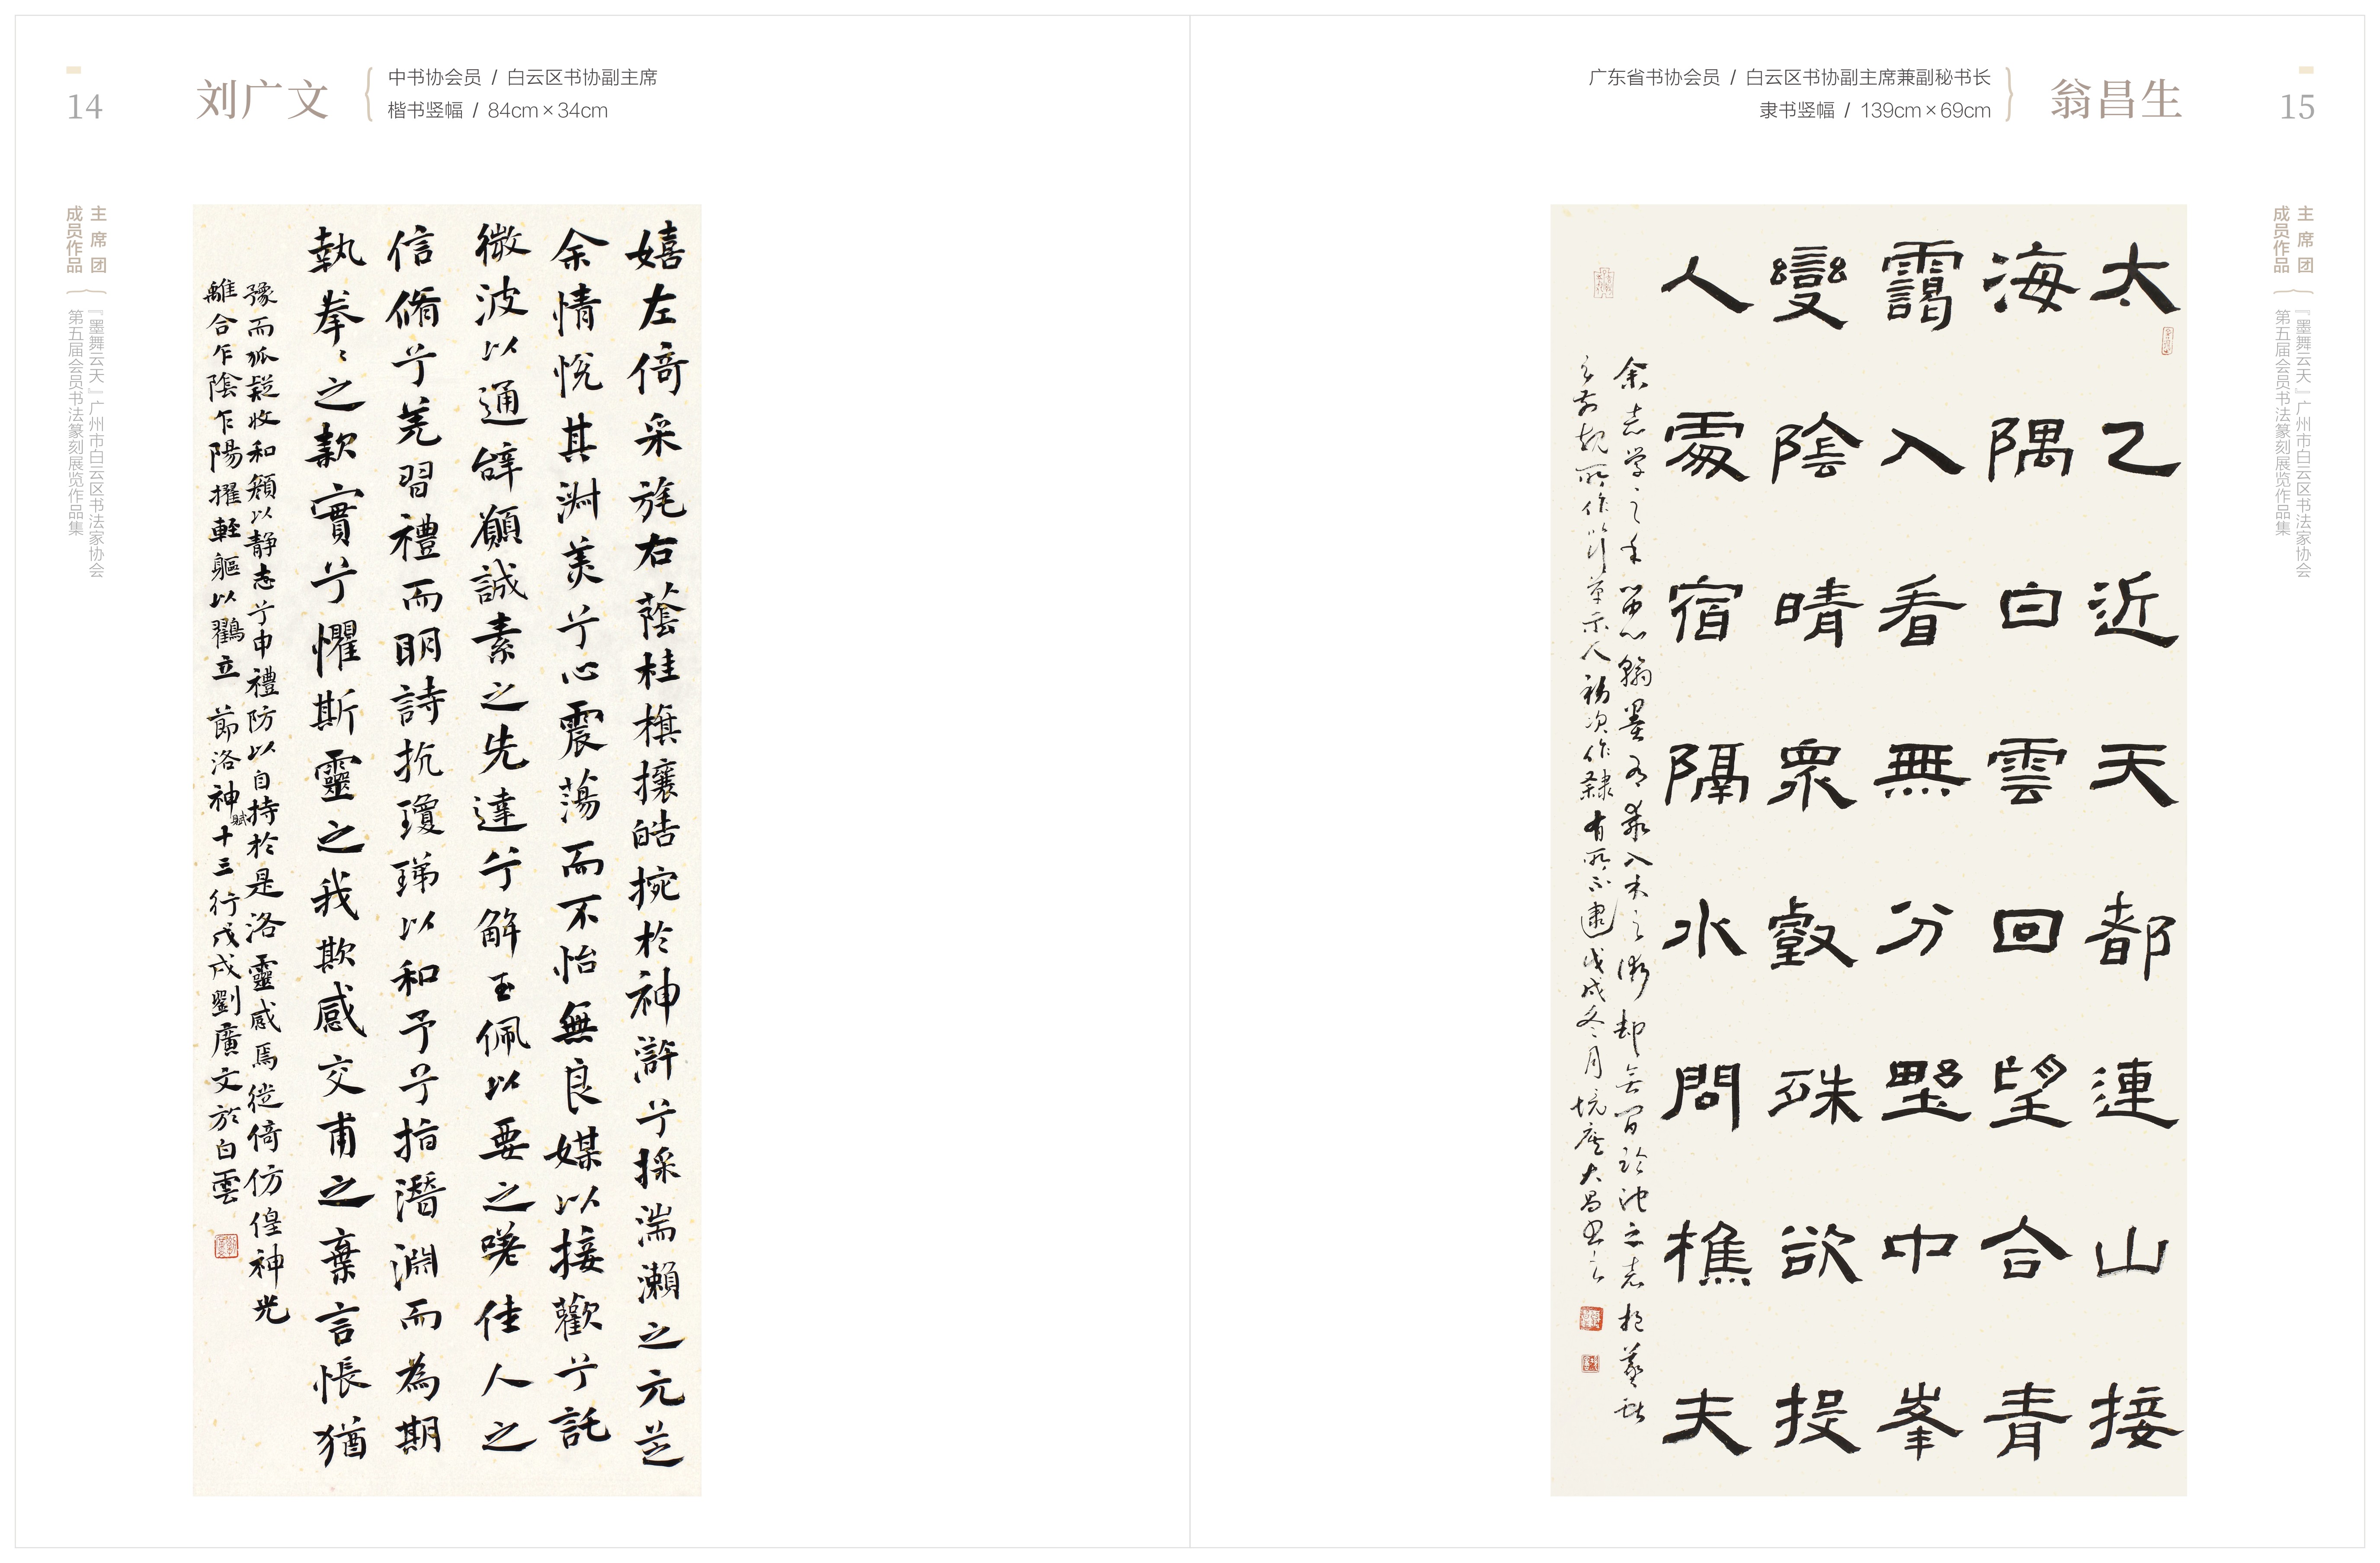 14
刘广文
中书协会员 / 白云区书协副主席
楷书竖幅 / 84cm×34cm
主席团
成员作品
『墨舞云天』广州市白云区书法家协会
第五届会员书法篆刻展览作品集
嬉左倚采旄右蔭桂旗攘皓捥於神滸兮採湍瀨之元芝
余情悅其淑美兮心震蕩而不怡無良媒以接歡兮託
微波以通辭願誠素之先達兮解玉佩以要之嗟佳人之
信脩兮羌習禮而明詩抗瓊珶以和予兮指潛淵而為期
執拳〻之款實兮懼斯靈之我欺感交甫之棄言悵猶
豫而狐疑收和顏以静志兮申禮防以自持於是洛靈感焉徙倚仿偟神光
離合乍陰乍陽擢輕軀以鶴立 節洛神賦十三行戊戌劉廣文於白雲
广东省书协会员 / 白云区书协副主席兼副秘书长
隶书竖幅 / 139cm×69cm
翁昌生
15
主席团
成员作品
『墨舞云天』广州市白云区书法家协会
第五届会员书法篆刻展览作品集
太乙近天都連山接
海隅白雲回望合青
靄入看無分壄中峯
變陰晴眾壑殊欲投
人處宿隔水問樵夫
余志学之年留心翰墨
入木之術却無
臨池之志
所作
草示人
次作隸有所不逮戊戌冬月
大昌